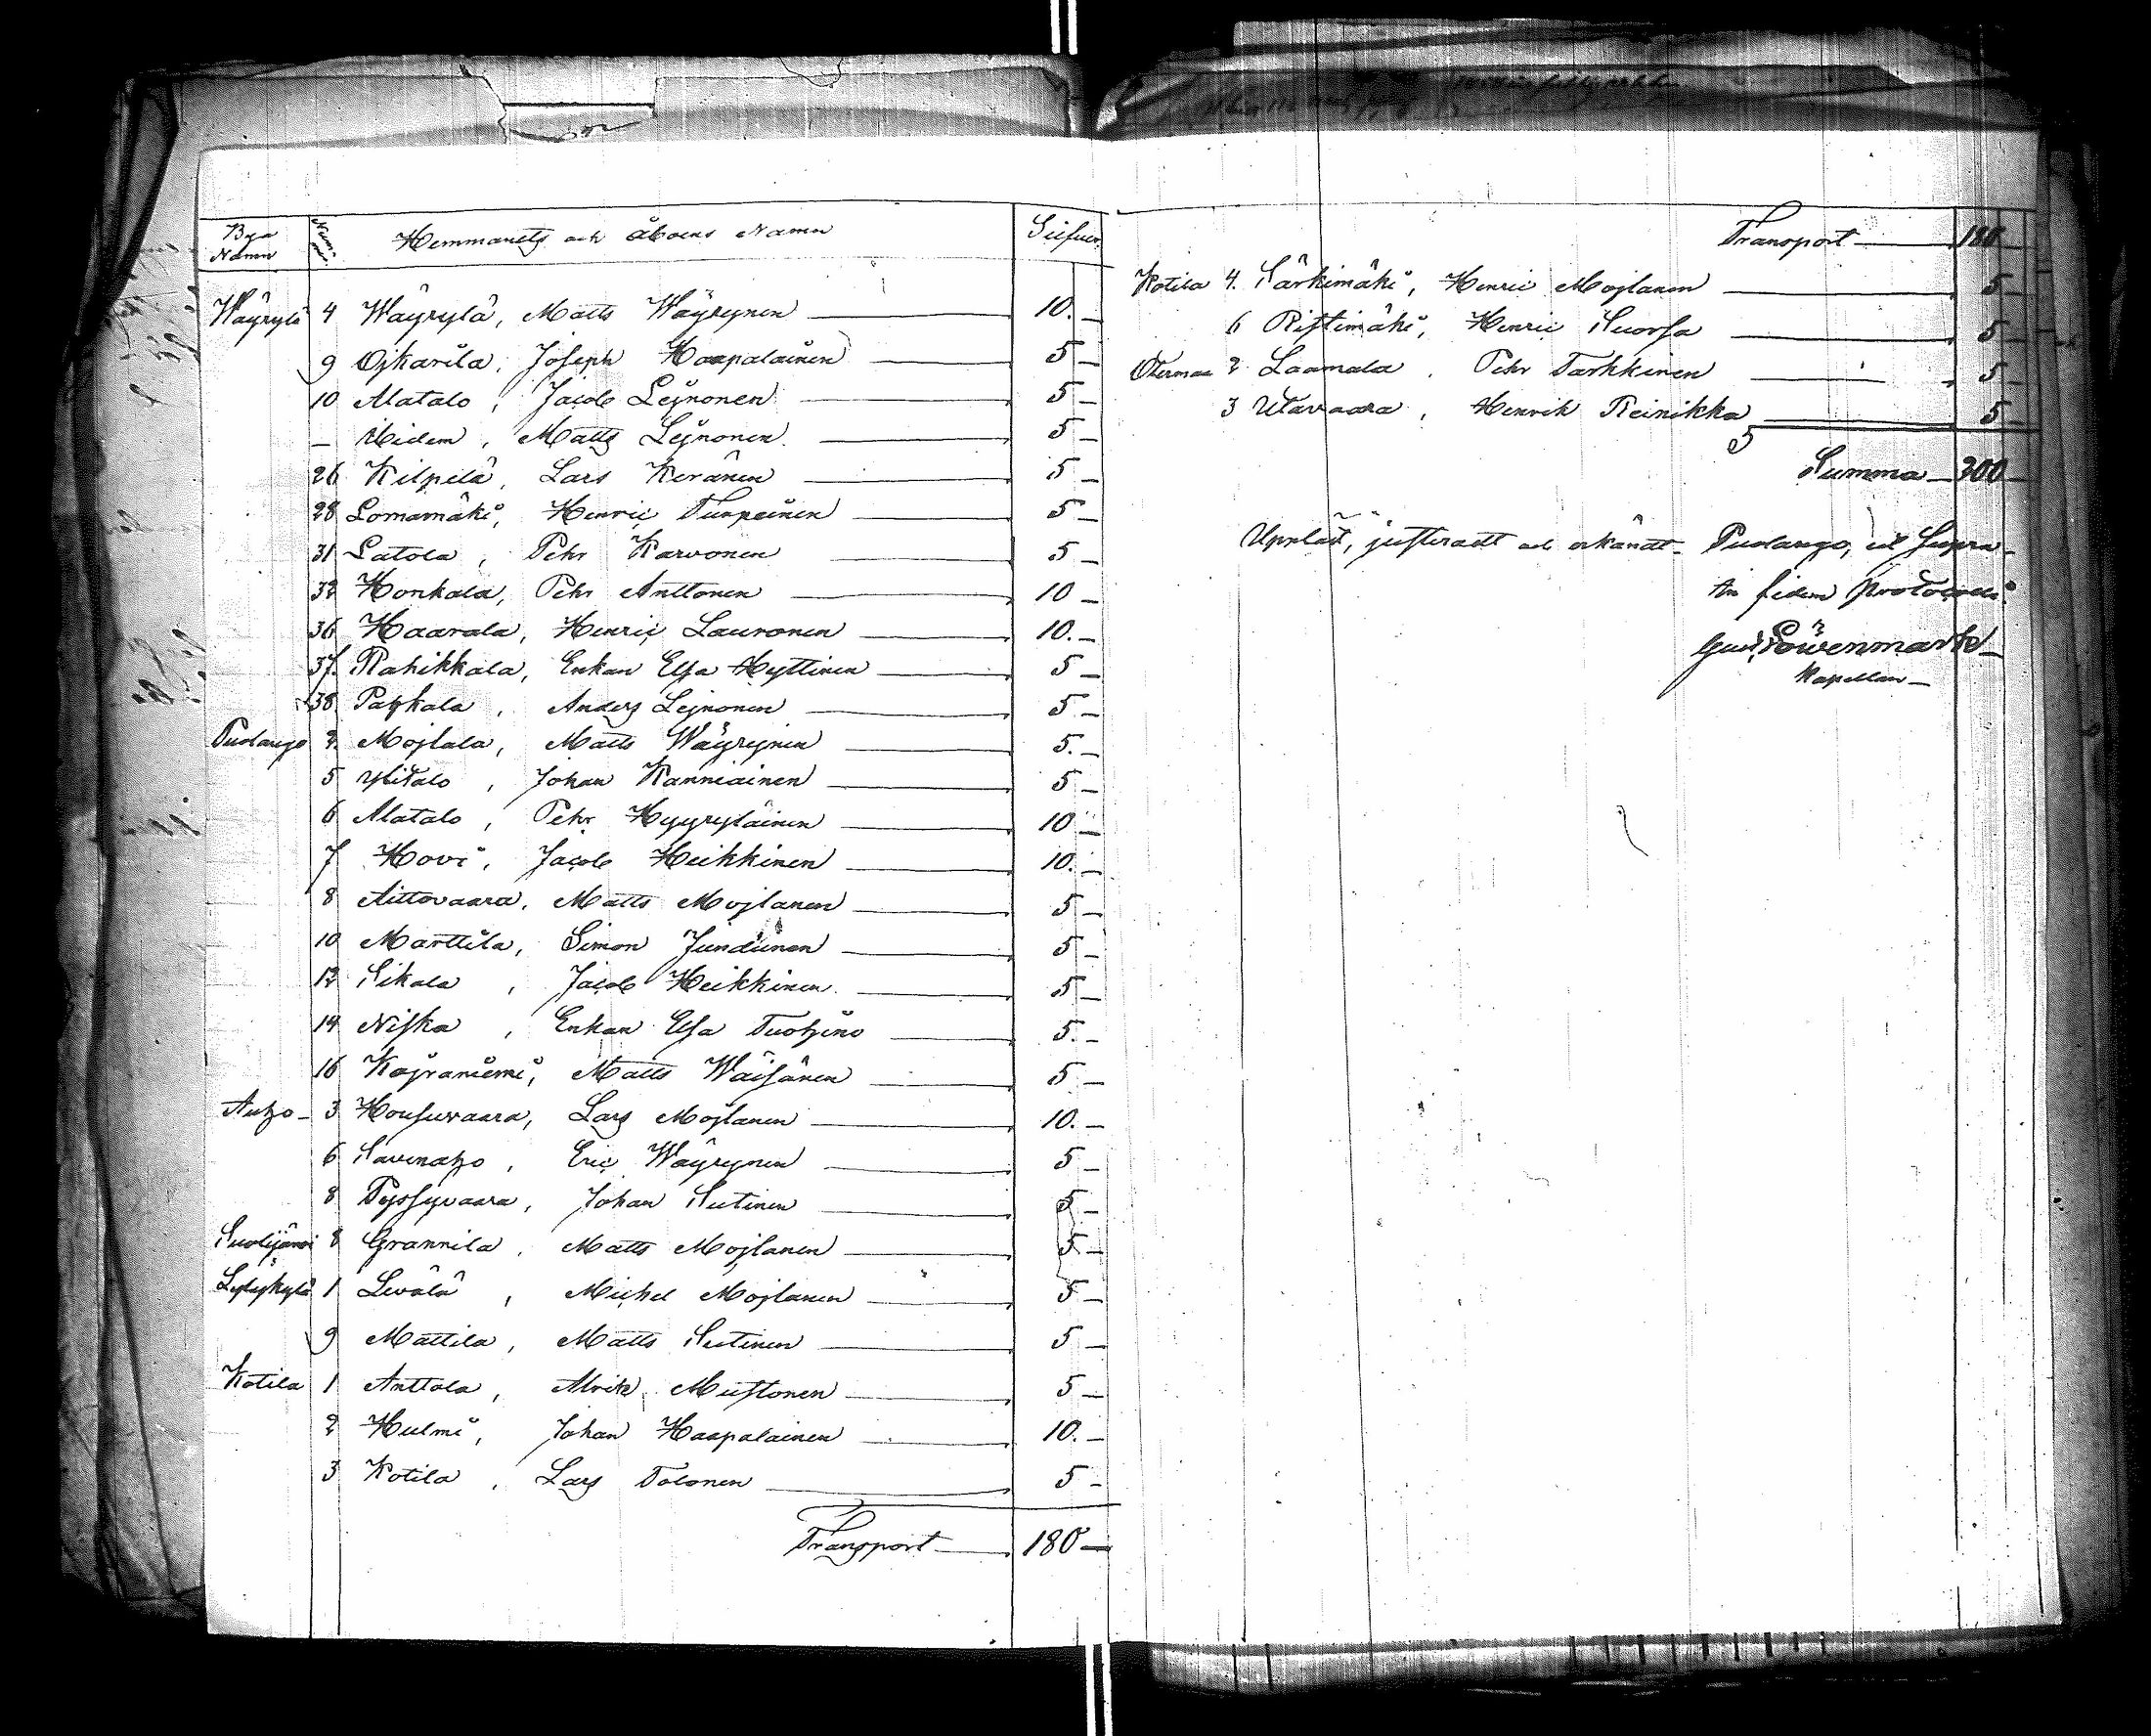 Bya Namn Num̅. Hemmanets och åboens Namn Siffror
Wäyrylä 4 Wäyrylä, Matts Wäyrynen 10.
9 Ojkarila, Joseph Haapalainen 5
10 Alatalo, Jacob Lejnonen 5
– Uidem, Matts Lejnonen 5
26 Kilpelä, Lars Keränen 5
28 Lomamäki, Henric Turpeinen 5
31 Latola, Pehr Karvonen 5
32 Honkala, Pehr Anttonen 10
36 Haarala, Henric Lauronen 10.
37. Rahikkala, Enkan Elsa Hyttinen 5
38 Patzkala, Anders Lejnonen 5
Puolango 2. Mojlala, Matts Wäyrynen 5.
5 Ylitalo, Johan Kanniainen 5
6 Alatalo, Pehr Hyyryläinen 10
7 Hovi, Jacob Heikkinen 10.
8 Aittovaara, Matts Mojlanen 5
10 Marttila, Simon Jundunen 5
12 Sikala, Jacob Heikkinen 5
14 Niska, Enkan Elsa Tuotzino 5.
16 Kojraniemi, Matts Wäisänen 5
Autzo 3 Housuvaara, Lars Mojlanen 10.
6 Savenatzo, Eric Wäyrynen 5
8 Pyssyvaara, Johan Sutinen 5
Suolijärvi 8 Grannila, Matts Mojlanen 5
Lylykylä 1 Levälä, Michel Mojlanen 5
9 Mattila, Matts Sutinen 5
Kotila 1 Anttola, Alrik Mustonen 5
2 Hulmi, Johan Haapalainen 10.
3 Kotila, Lars Tolonen 5
Transport 180
Transport 180
Kotila 4. Särkimäki, Henric Mojlanen 5
6 Ristimäki, Henric Suorsa 5
Otermaa 2 Laamala, Pehr Tarkkinen 5
3 Utavaara, Henrik Reinikka 5
Summa 200
Uppläst, justeradt och erkändt. Puolango, ut supra
In fidem protocolli
Gust. Löwenmark
Kapellan